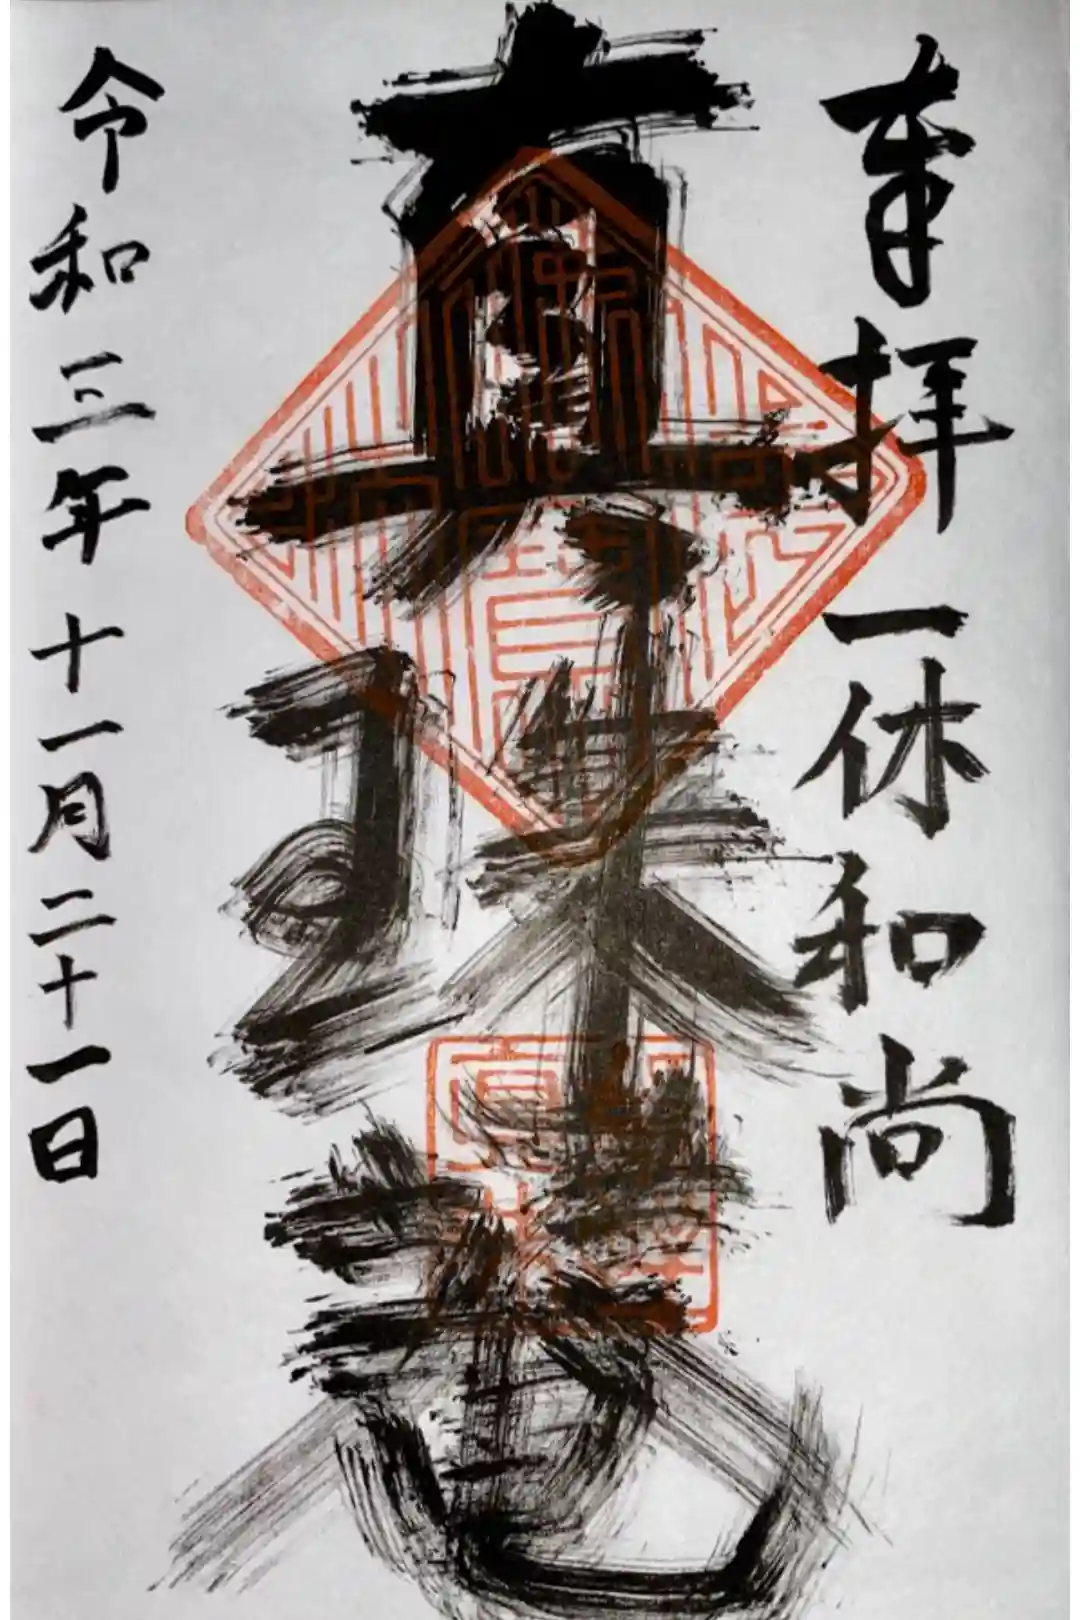 奉拝 一休和尚
真珠菴
令和三年十一月二十一日